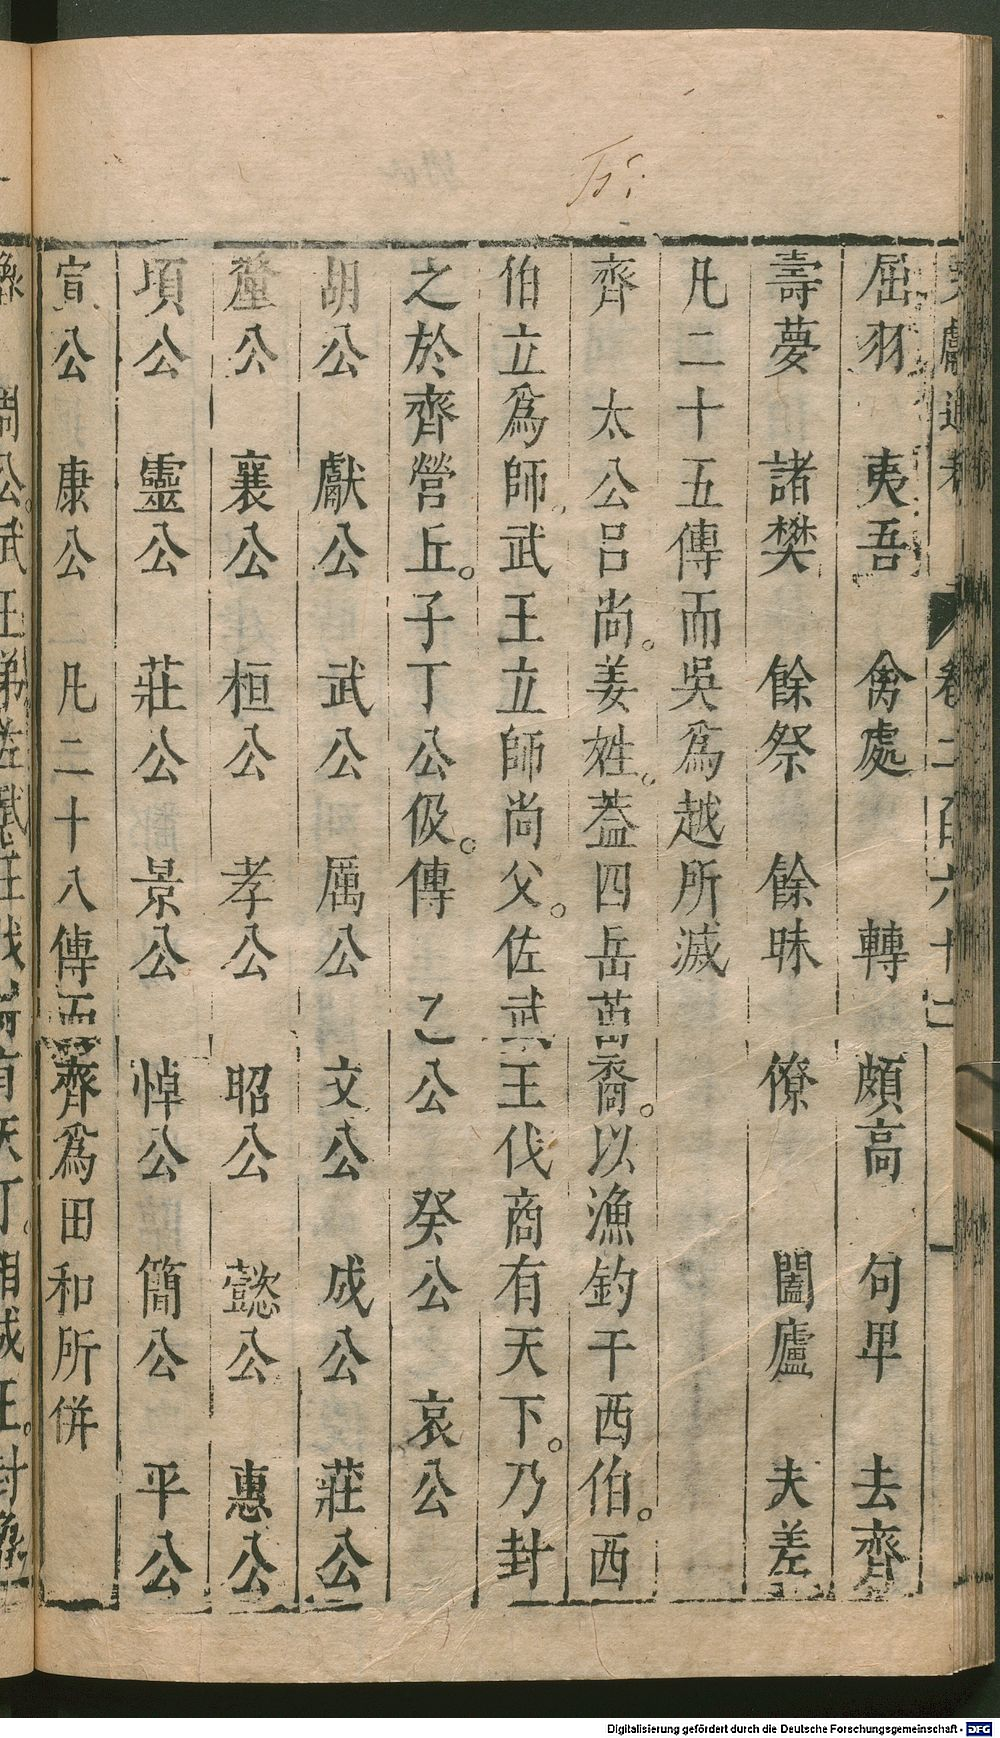 文獻通考 卷二百六十二
屈羽 夷吾 禽處 轉 頗高 句卑 去齊
壽夢 諸樊 餘祭 餘昧 僚 闔廬 夫差
凡二十五傳而吳爲越所滅
齊 太公呂尚。姜姓。蓋四岳苗裔。以漁釣干西伯。西
伯立爲師。武王立師尚父。佐武王伐商有天下。乃封
之於齊營丘。子丁公伋。傳 乙公 癸公 哀公
胡公 獻公 武公 厲公 文公 成公 莊公
釐公 襄公 桓公 孝公 昭公 懿公 惠公
頃公 靈公 莊公 景公 悼公 簡公 平公
宣公 康公 凡二十八傳而齊爲田和所併
Digitalisierung gefördert durch die Deutsche Forschungsgemeinschaft - DFG